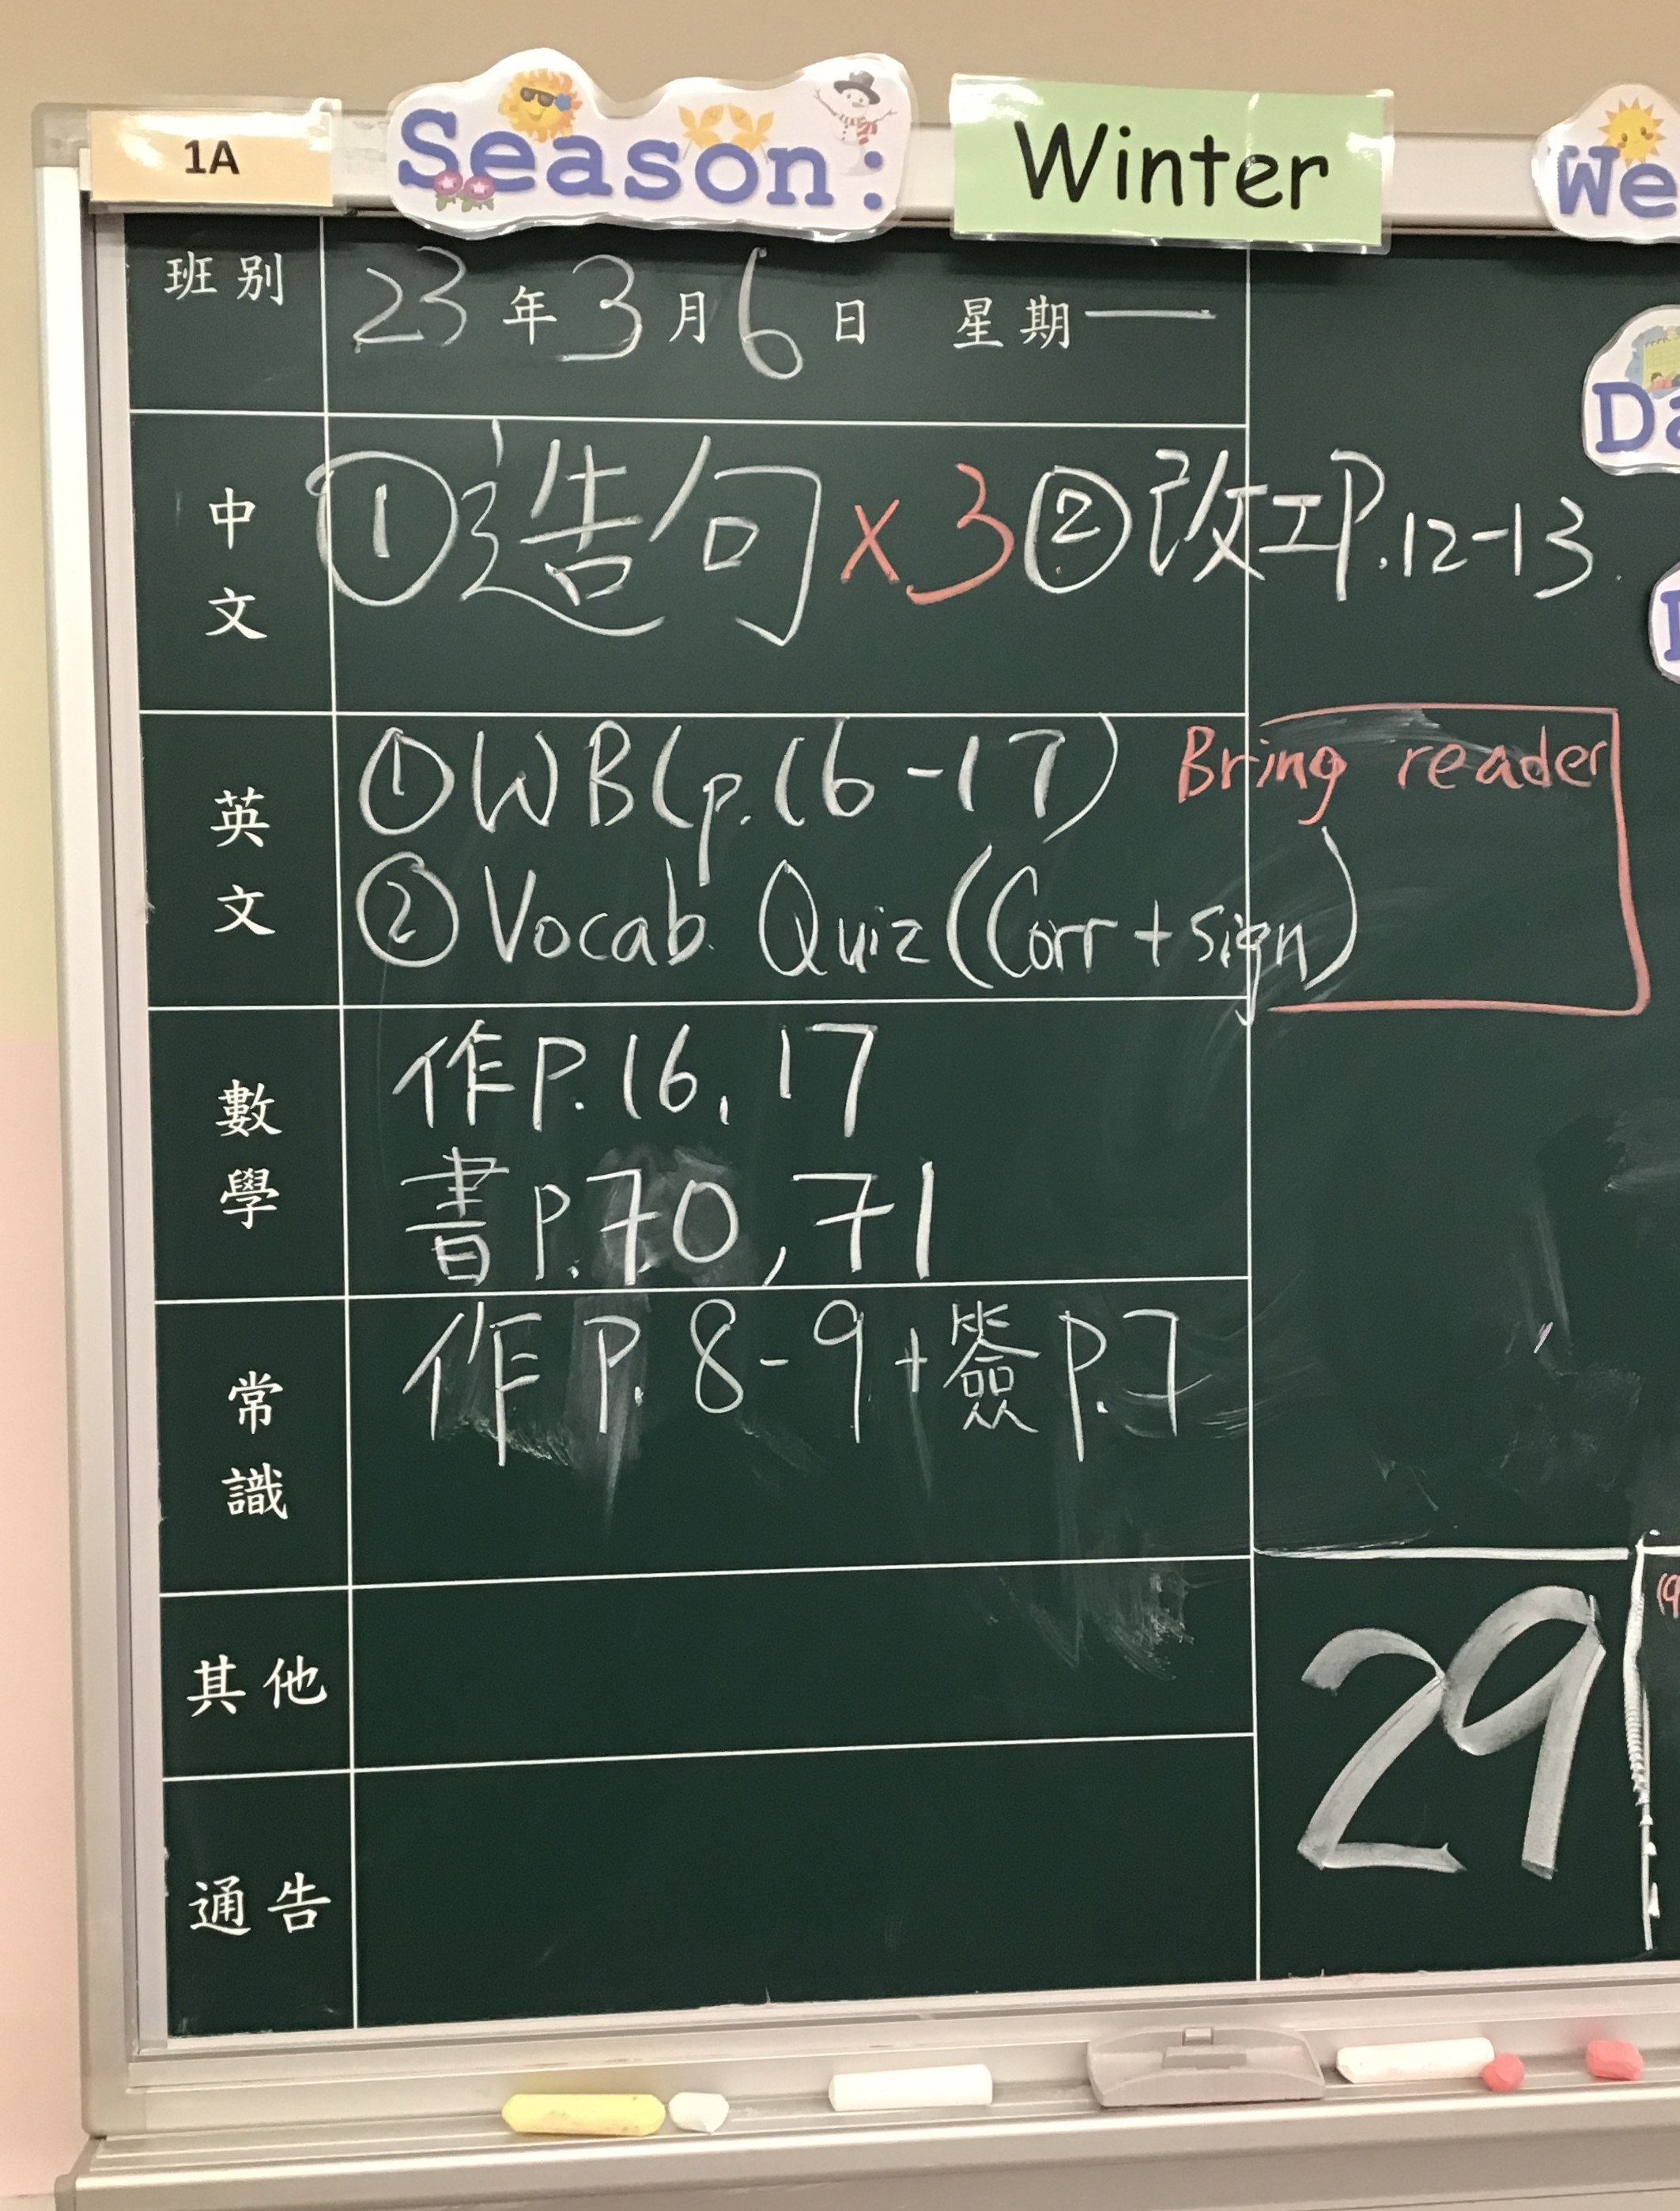 1A
Season:
Winter
We
班別
23年3月6日 星期一
Da
中文
①造句x3②改工P.12-13
英文
①WB(p.16-17) Bring reader
②Vocab Quiz(Corr+sign)
數學
作P.16,17
書P.70,71
常識
作P.8-9+簽P.7
其他
29
通告